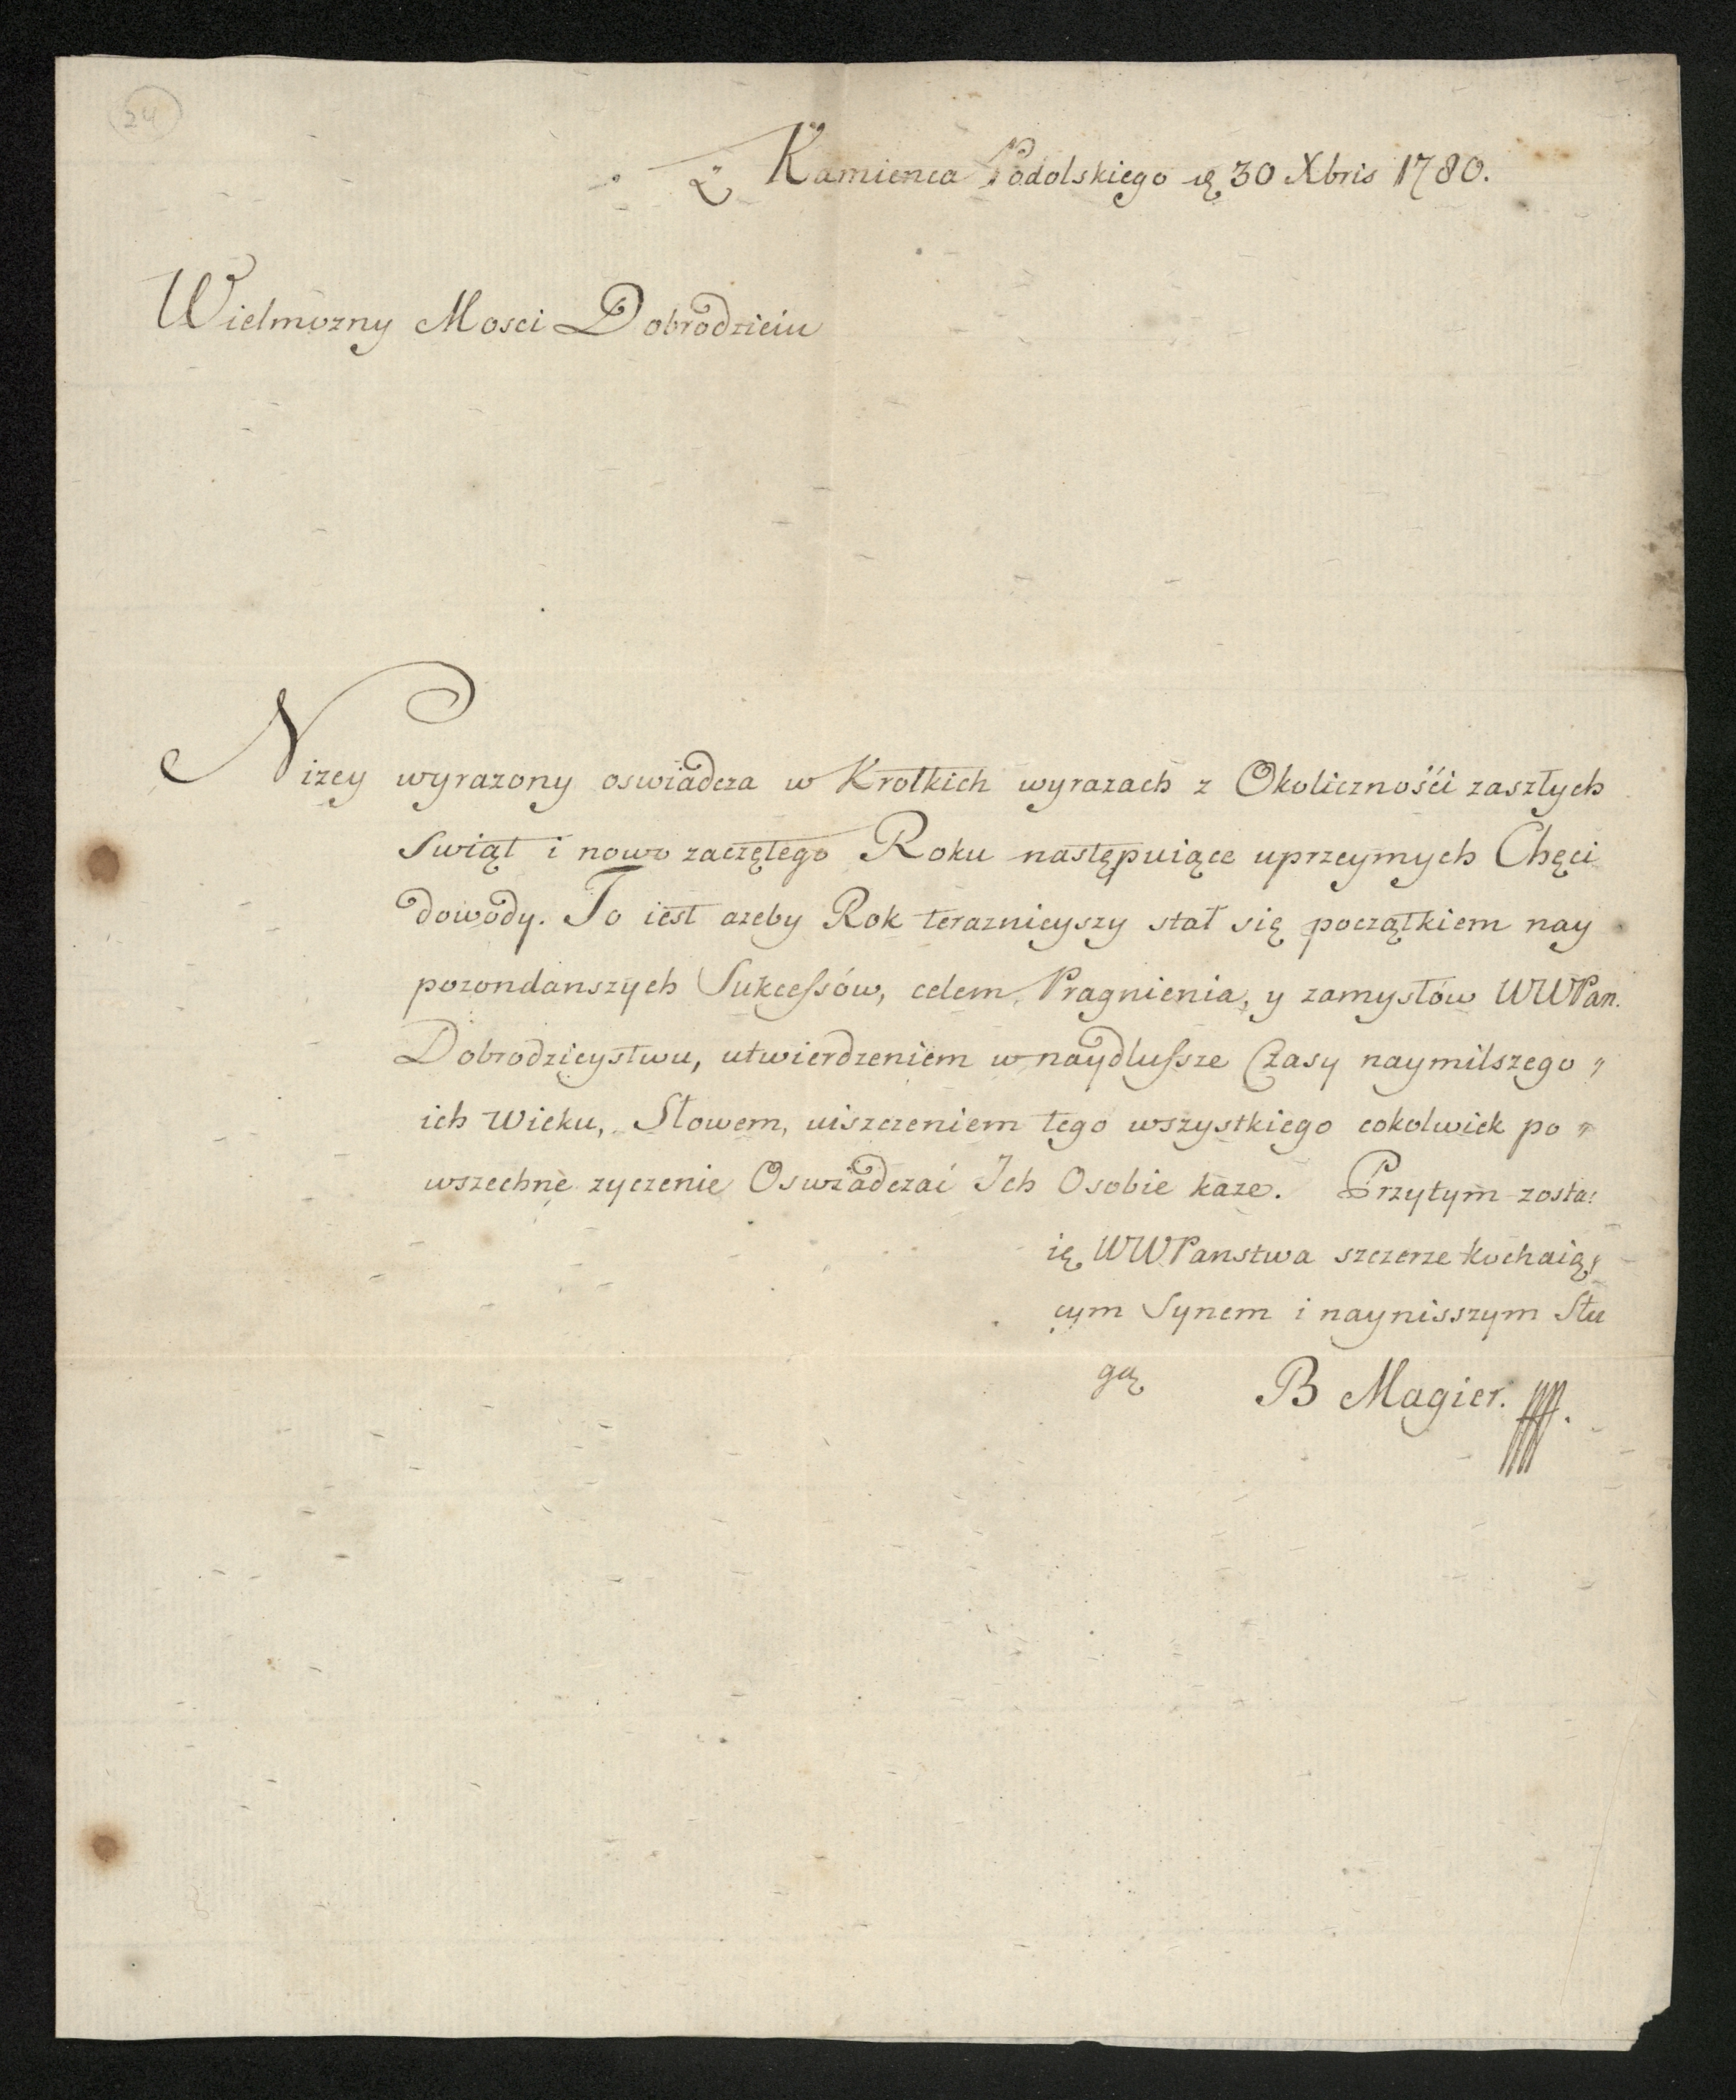 24
Z Kamienca Podolskiego d 30 Xbris 1780.
Wielmozny Mosci Dobrodzieiu
Nizey wyrazony oswiadcza w Krotkich wyrazach z Okolicznośći zaszłych
Swiąt i nowo zaczętego Roku następuiące uprzeymych Chęci
dowody. To iest azeby Rok teraznieyszy stał się początkiem nay
pozondanszych Sukcessów, celem, Pragnienia, y zamysłów WWPan.
Dobrodzieystwu, utwierdzeniem w naydlussze Czasy naymilszego "
ich Wieku, Słowem, uiszczeniem tego wszystkiego cokolwiek po "
wszechne zyczenie Oswiadczać Ich Osobie kaze. Przytym zosta:
ię WWPanstwa szczerze kochaią:
cym Synem i naynisszym Słu
gą B Magier.